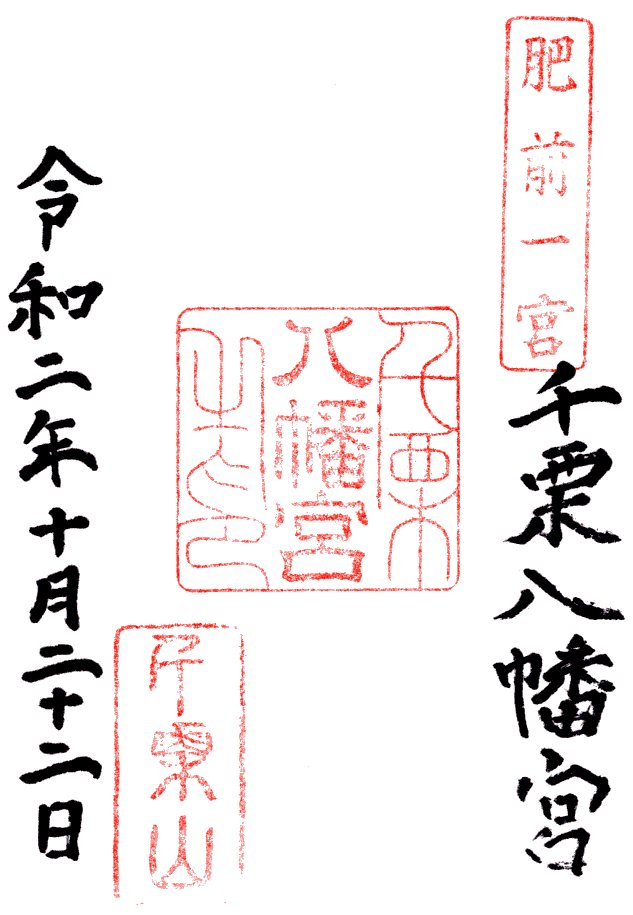 肥前一宮
千栗八幡宮
千栗
八幡宮
千栗山
令和二年十月二十二日